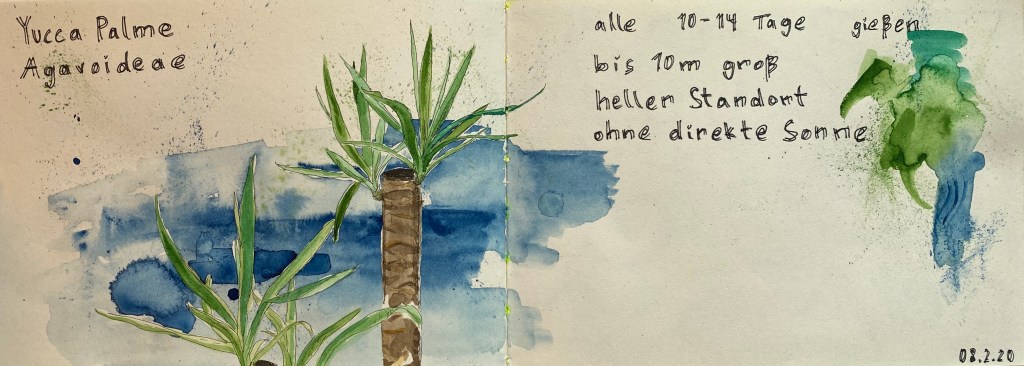 Yucca Palme
Agavoideae
alle 10-14 Tage gießen
bis 10m groß
heller Standort
ohne direkte Sonne
08.2.20